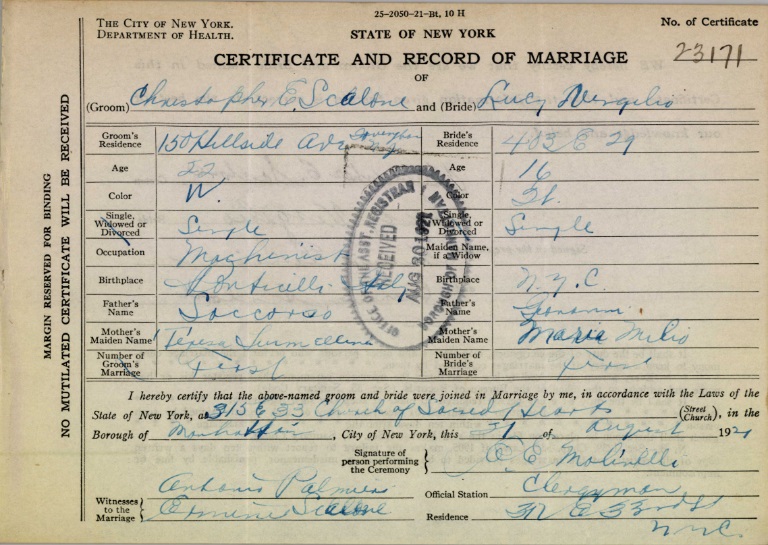 25-2050-21-Bt. 10 H
THE CITY OF NEW YORK.
DEPARTMENT OF HEALTH.
STATE OF NEW YORK
No. of Certificate
23171
CERTIFICATE AND RECORD OF MARRIAGE
OF
(Groom) Christopher E. Scalone and (Bride) Lucy Vergilio
Groom's Residence 150 Hillside Ave Bride's Residence 403 E 29
Age 22 Age 16
Color W. Color
Single, Widowed or Divorced Single Single, Widowed or Divorced Single
Occupation Machinist Maiden Name, if a Widow
Birthplace Monticelli Italy Birthplace N.Y.C.
Father's Name Soccorso Father's Name Giovanni
Mother's Maiden Name Teresa Mother's Maiden Name Maria Milio
Number of Groom's Marriage First Number of Bride's Marriage First
OFFICE OF THE ASST. REGISTRAR
RECEIVED
AUG 30 1921
BOROUGH OF
I hereby certify that the above-named groom and bride were joined in Marriage by me, in accordance with the Laws of the
State of New York, at 315 E 33 Church of Sacred Hearts (Street Church), in the
Borough of Manhattan, City of New York, this 21 of August 1921
Signature of person performing the Ceremony E Molinelli
Witnesses to the Marriage Antonio Palmieri
Scalone
Official Station Clergyman
Residence E 33rd St
N.Y.C.
MARGIN RESERVED FOR BINDING
NO MUTILATED CERTIFICATE WILL BE RECEIVED